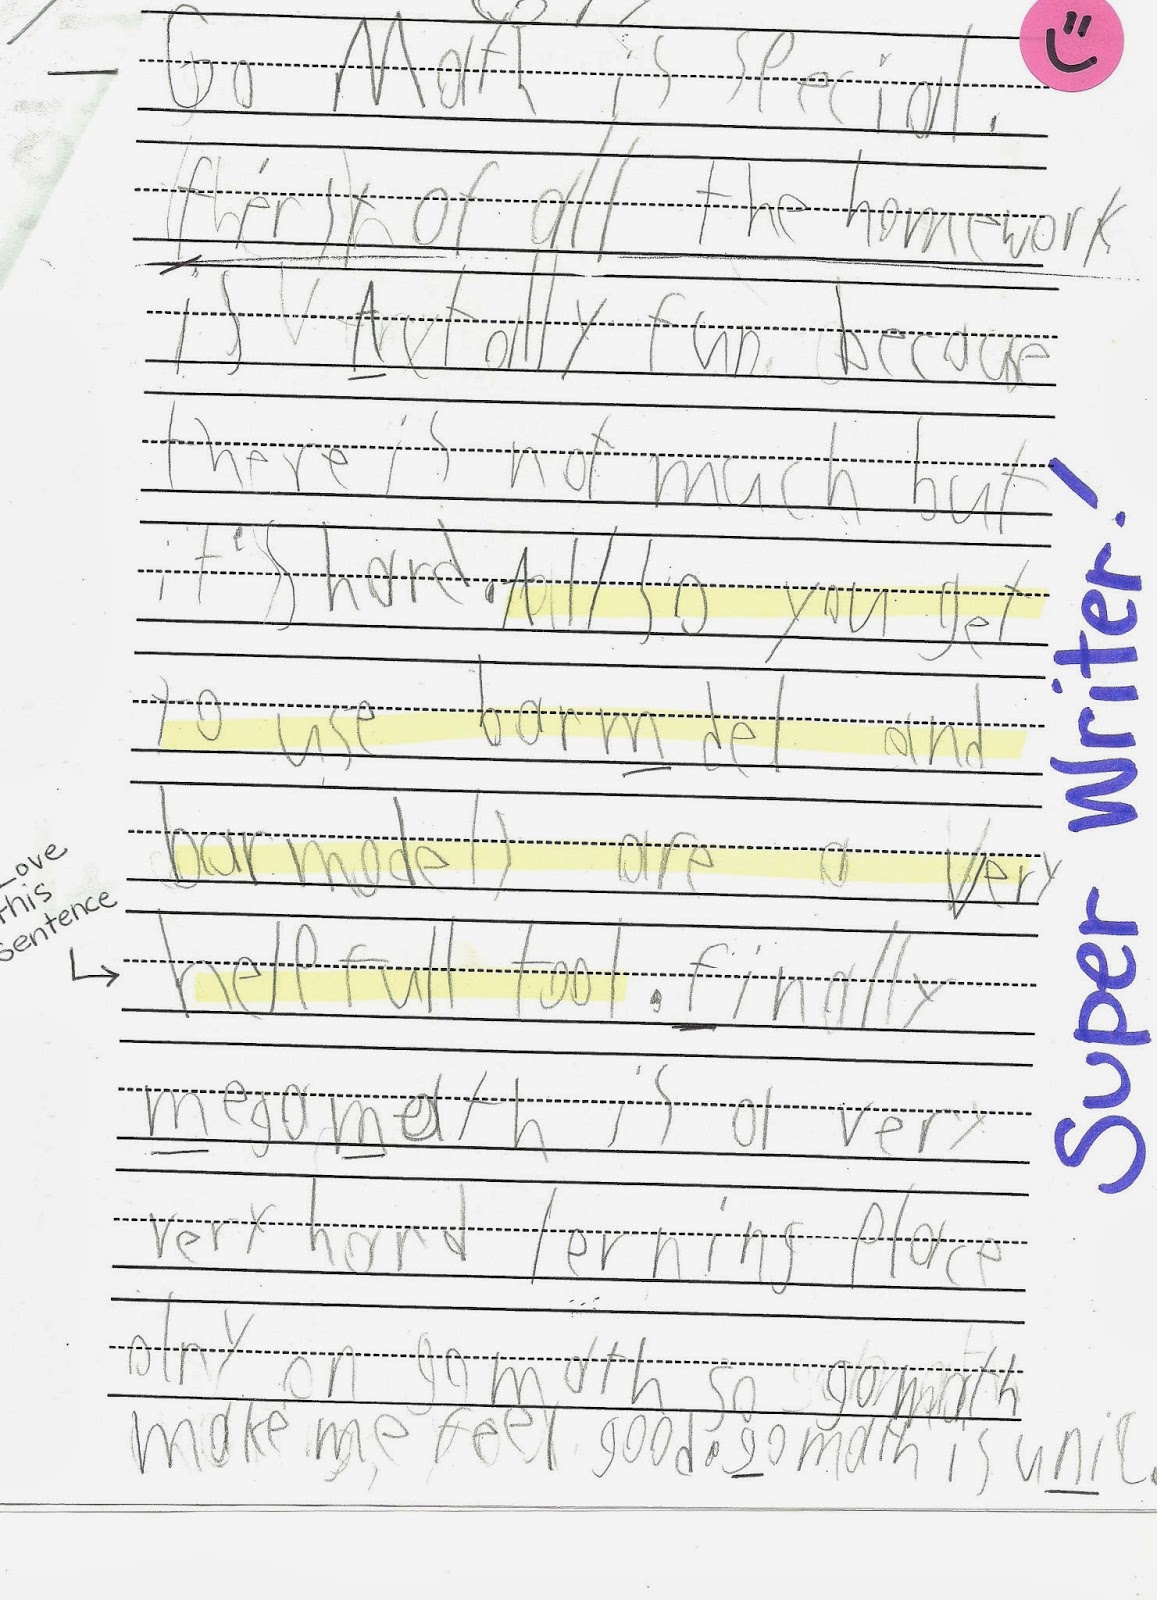 Go Math is special.
of all the homework
is Actally fun because
there is not much but
it's hard. Allso you get
to use barmdel and
barmodels are a very
Love
This
Sentence
helpfull tool. finally
megamath is a very
very hard lerning place
olny on gomath so gomath
make me feel good. gomath is unic.
Super Writer!